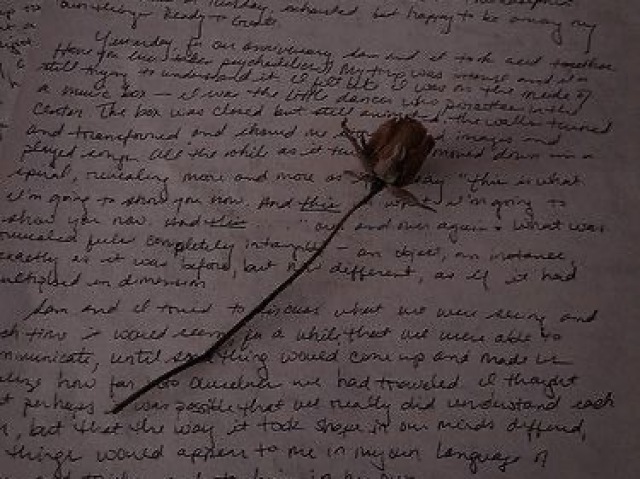 of Tuesday, exhausted, but happy to be among my
up to our things. Ready to
Yesterday, for our anniversary, Sam and I took acid together
psychedelics. My trip was intense and I'm
still trying to understand it. I felt like I was on the inside of
a music box – I was the little dancer who pirouettes in the
center. The box was closed but still animated, the walls turned
and transformed and showed me images and
played songs. All the while as it moved down in a
spiral, revealing more and more as "this is what
I'm going to show you now. And this is what I'm going to
show you now. And this . . . " over and over again. What was
revealed felt completely intangible – an object, an instance,
exactly as it was before, but now different, as if it had
multiplied in dimension
Sam and I tried to discuss what we were seeing and
each time it would seem for a while that we were able to
communicate, until something would come up and made us
realize how far into ourselves we had traveled. I thought
that perhaps it was possible that we really did understand each
, but that the way it took shape in our minds differed,
things would appear to me in my own language of